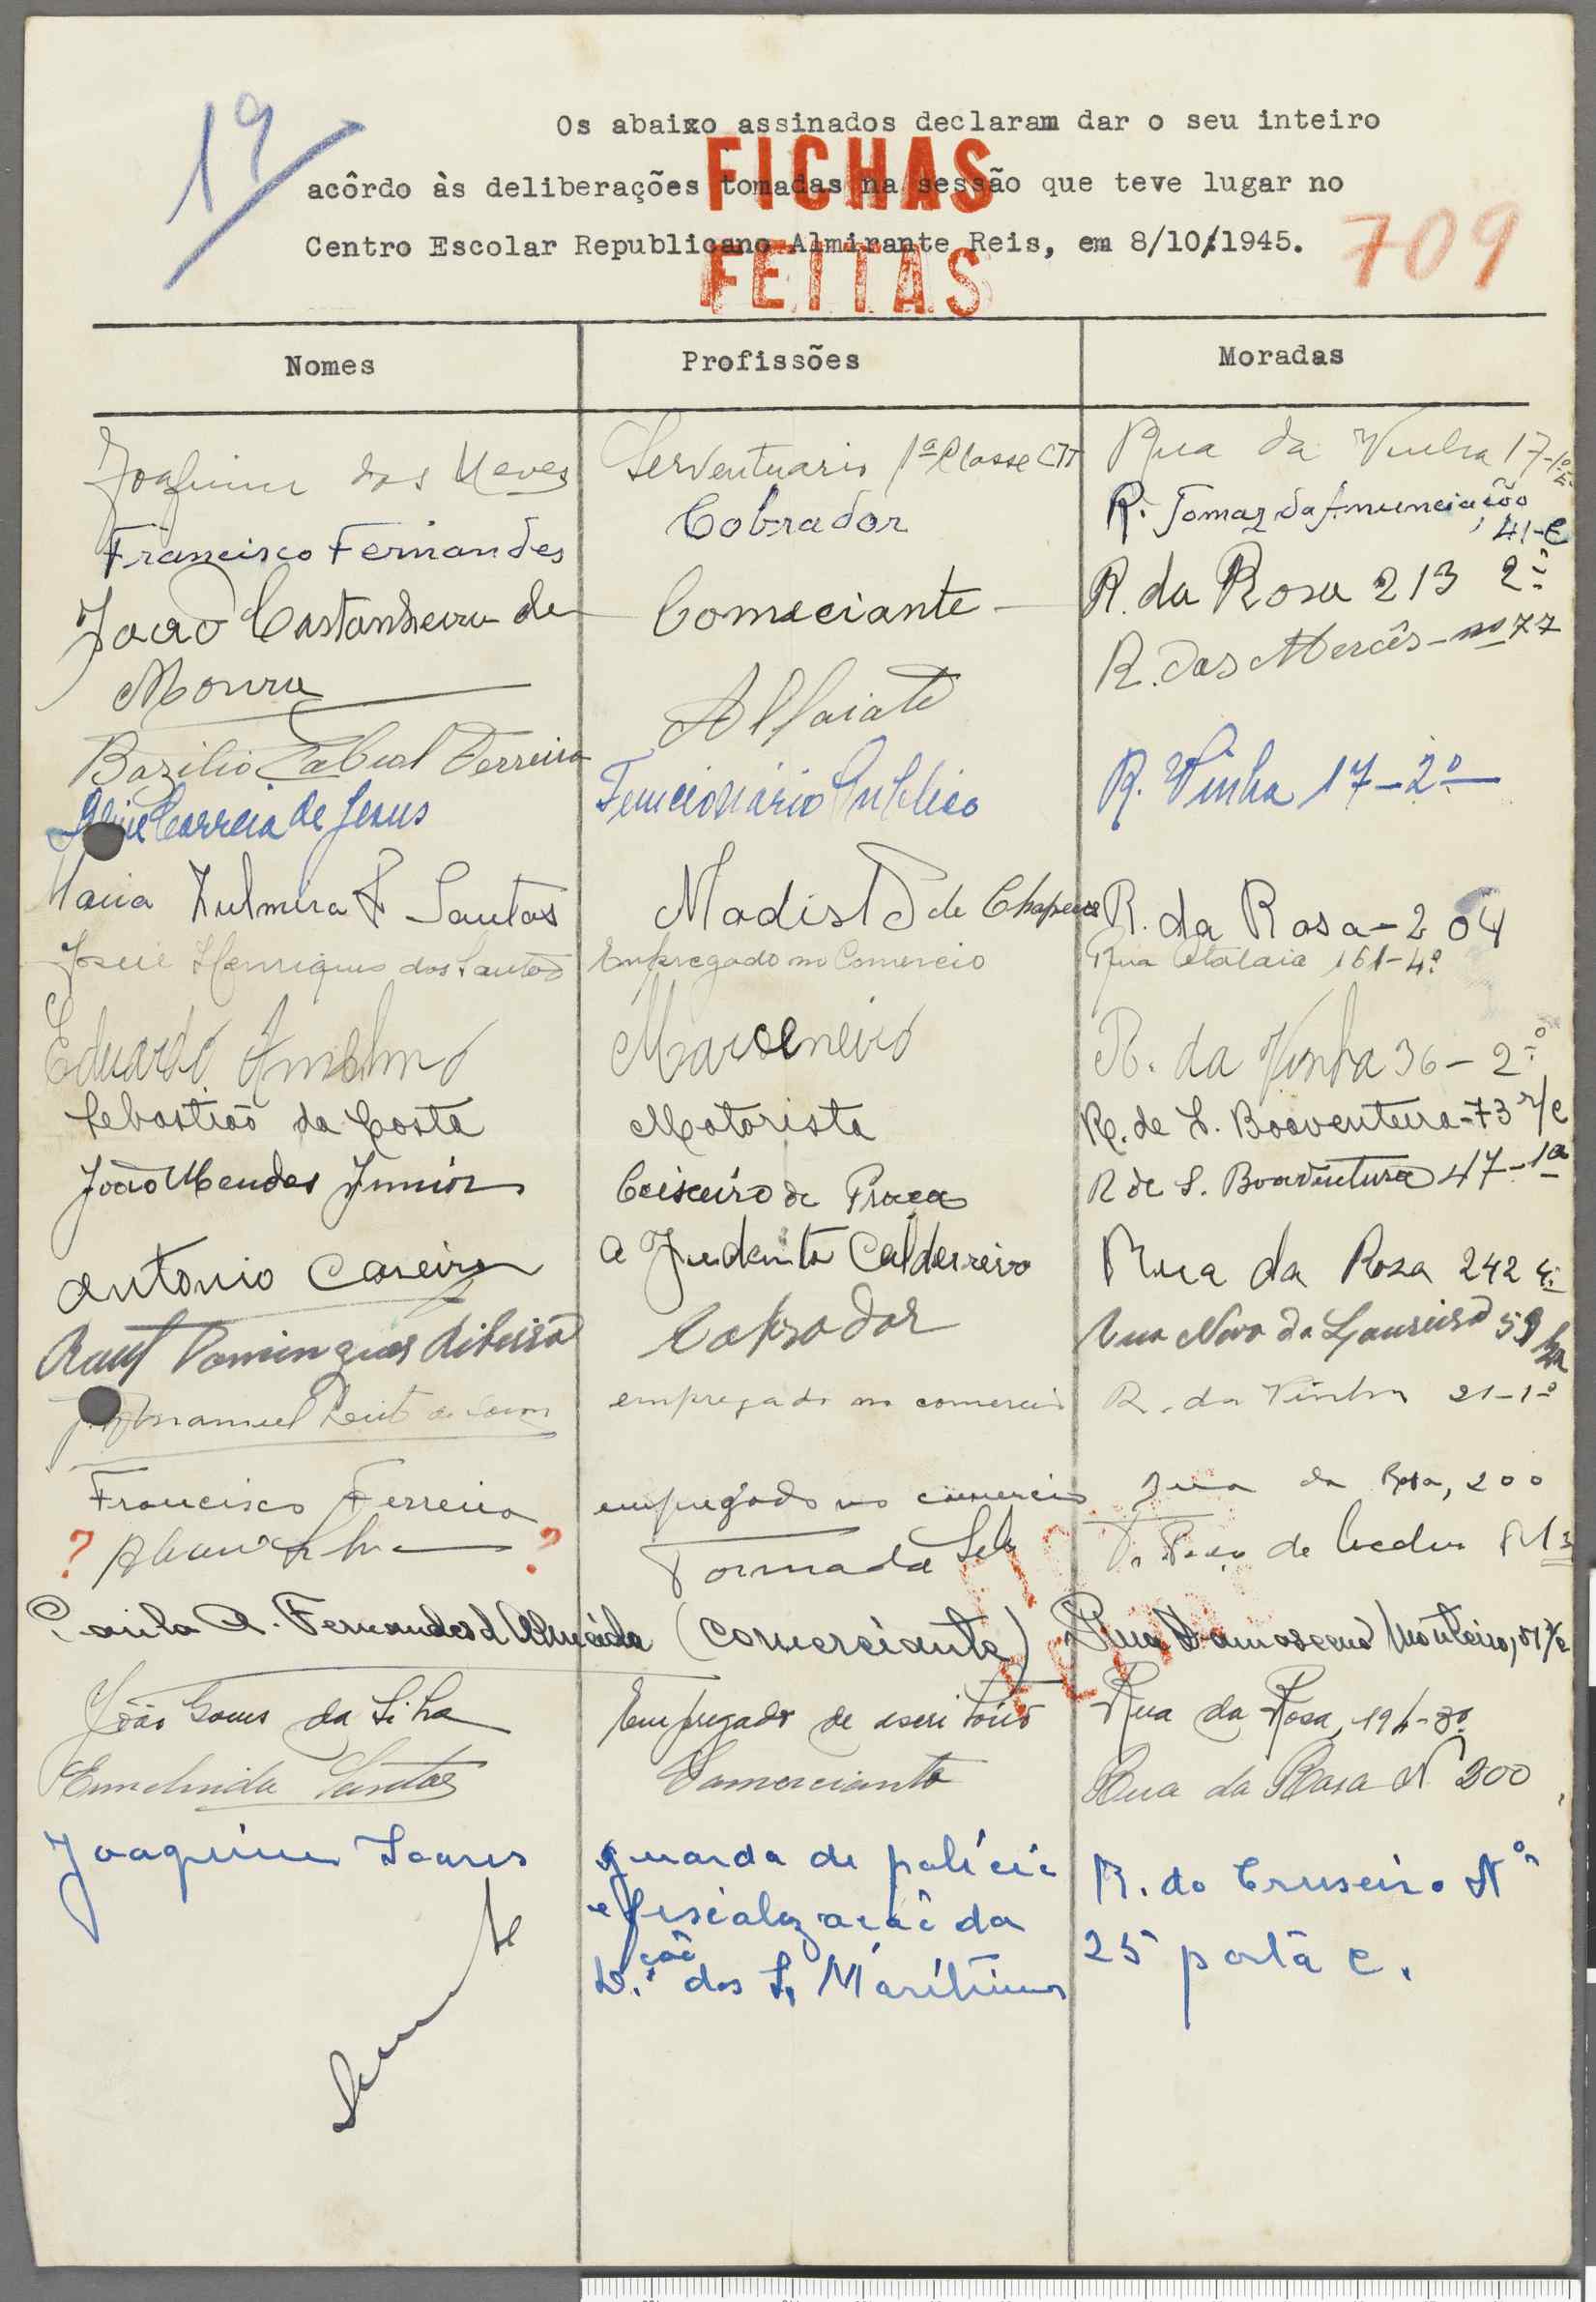 19
Os abaixo assinados declaram dar o seu inteiro
acôrdo às deliberações tomadas na sessão que teve lugar no
Centro Escolar Republicano Almirante Reis, em 8/10/1945.
FICHAS
FEITAS
709
Nomes Profissões Moradas
Joaquim das Neves Serventuario 1ª Classe CTT Rua da Vinha 17-1º
Francisco Fernandes Cobrador R. Tomaz da Anunciação, 41-C
João Castanheira de Comerciante R. da Rosa 213 2º
Moura
Bazilio Cabral Ferreira Alfaiate R. das Mercês - nº 77
Correia de Jesus Funcionário Publico R. Vinha 17-2º
Maria Zulmira P Santos Modista de Chapeus R. da Rosa-204
José Henriques dos Santos Empregado no Comercio Rua Atalaia 161-4º
Eduardo Anselmo Marceneiro R. da Vinha 36-2º
Sebastião da Costa Motorista R. de S. Boaventura-73 r/c
João Mendes Junior Caixeiro de Praça R de S. Boaventura 47-1º
Antonio Caseiro Ajudante Caldeireiro Rua da Rosa 242
Raul Domingues Ribeiro Cobrador Rua Nova do Loureiro 59
Manuel empregado no comercio R. da Vinha 21-1º
Francisco Ferreira empregado no comercio Rua da Rosa, 200
? Silva ? T. de
Paula A. Fernandes d'Almeida (comerciante) Rua Damasceno Monteiro, r/c
João Gomes da Silva Empregado de escritorio Rua da Rosa,
Ermelinda Santos Comerciante Rua da Rosa Nº 200
Joaquim Soares guarda de policia R. do Cruseiro Nº
e fiscalização da 25 porta C.
D.ção dos S. Marítimos